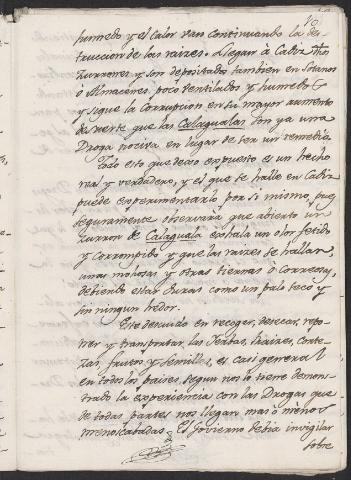 10
humedo y el calor van continuando la des-
truccion de las raizes. Llegan à Cadiz dhos
Zurrones y son depositados tambien en Sotanos
ò Almacènes poco ventilados y humedos
y sigue la Corrupcion en su mayor aumento
de suerte que las Calaguelas son ya una
Droga nociva en lugar de ser un remedio.
Todo esto que dexo expuesto es un hecho
real y verdadero, y el que se halle en Cadiz
puede experimentarlo por si mismo, pues
seguramente observarà que abierto un
Zurron de Calaguala exhala un olor fetido
y corrompido y que las raizes se hallan
unas mohosas y otras tiernas ò Correosas,
debiendo estar duras como un palo seco y
sin ningun hedor.
Este descuido en recoger, desecar, repo-
ner y transportar las Yerbas, Raizes, Corte-
zas, frutos y Semillas, es casi general
en todos los paises, segun nos lo tiene demons-
trado la experiencia con las Drogas que
de todas partes nos llegan mas ò mènos
menoscabadas. El Govierno debia invigilar
sobre